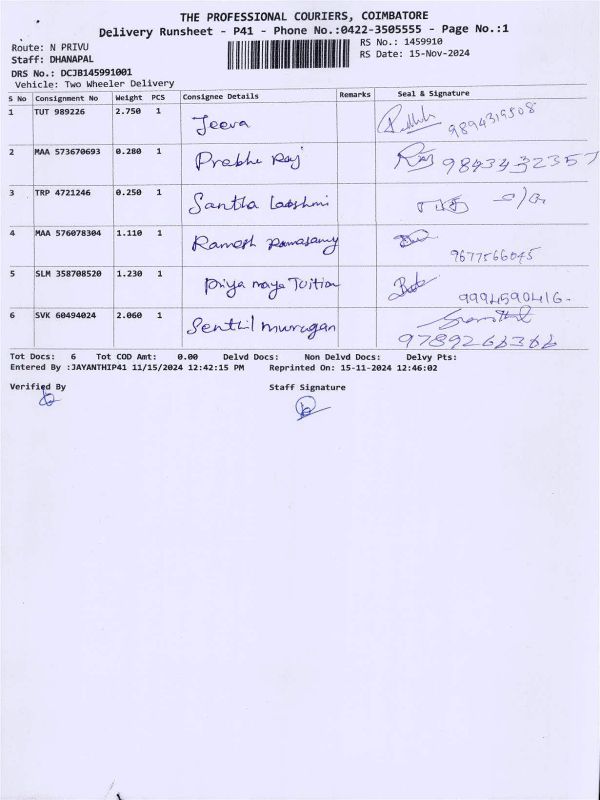 THE PROFESSIONAL COURIERS, COIMBATORE
Delivery Runsheet - P41 - Phone No.:0422-3505555 - Page No.:1
Route: N PRIVU
RS No.: 1459910
Staff: DHANAPAL
RS Date: 15-Nov-2024
DRS No.: DCJB145991001
Vehicle: Two Wheeler Delivery
S No Consignment No Weight PCS Consignee Details Remarks Seal & Signature
1 TUT 989226 2.750 1 Jeeva
2 MAA 573670693 0.280 1 Prabhu Raj Raj 9843432357
3 TRP 4721246 0.250 1 Santha Lakshmi
4 MAA 576078304 1.110 1 Ramesh Ramasamy 9677566045
5 SLM 358708520 1.230 1 Priya maya Tuition 9994590416
6 SVK 60494024 2.060 1 Senthil murugan 9789266366
Tot Docs: 6 Tot COD Amt: 0.00 Delvd Docs: Non Delvd Docs: Delvy Pts:
Entered By :JAYANTHIP41 11/15/2024 12:42:15 PM Reprinted On: 15-11-2024 12:46:02
Verified By Staff Signature